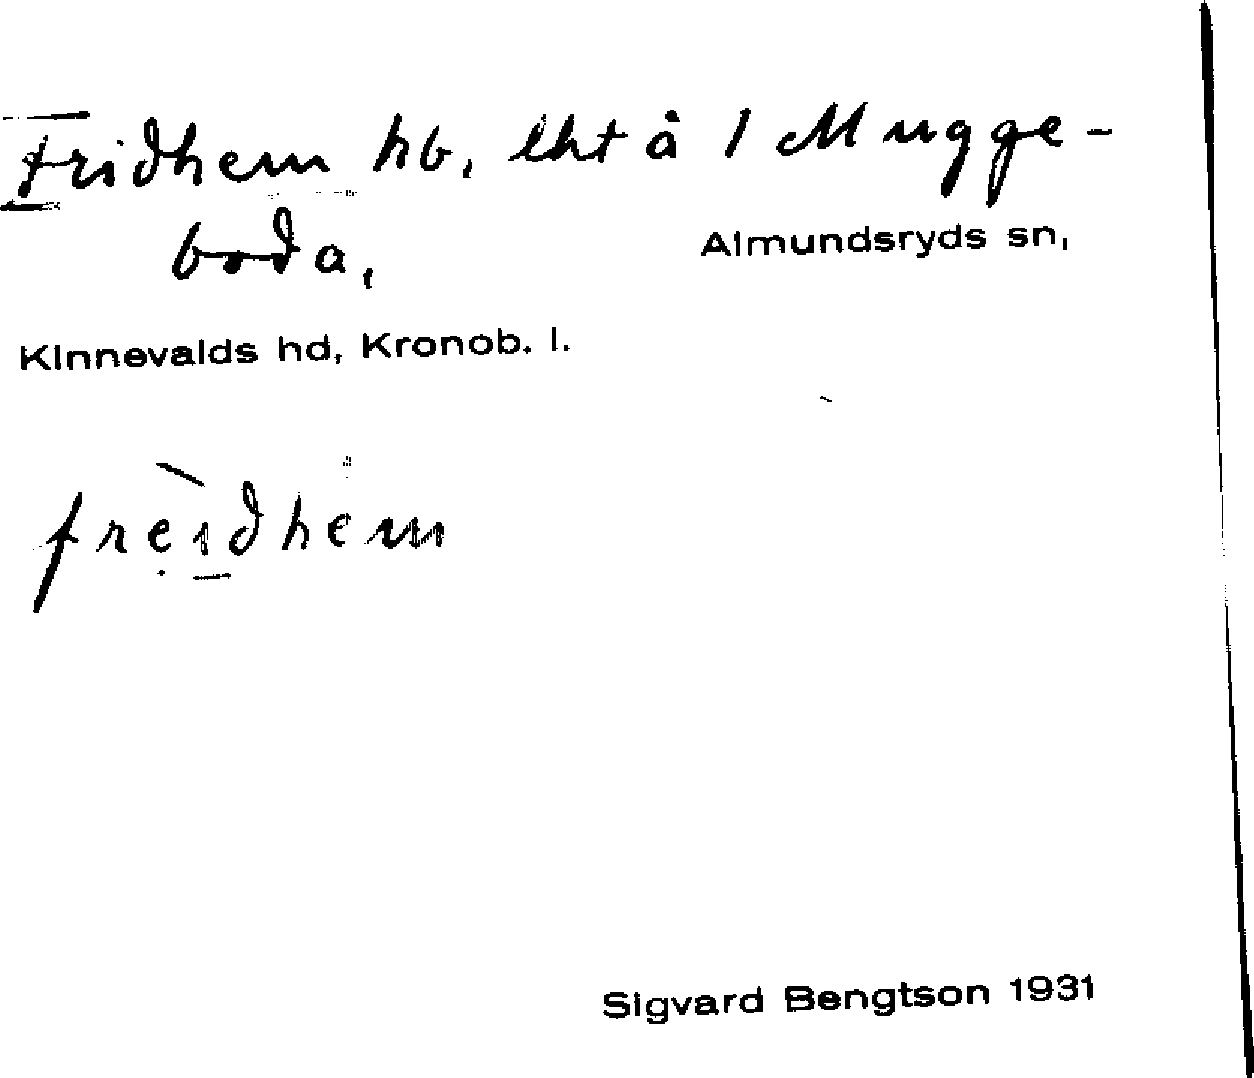 Fridhem hb, lht å 1 Mugge-
boda,
Almundsryds sn,
Kinnevalds hd, Kronob. l.
frèidhem
Sigvard Bengtson 1931